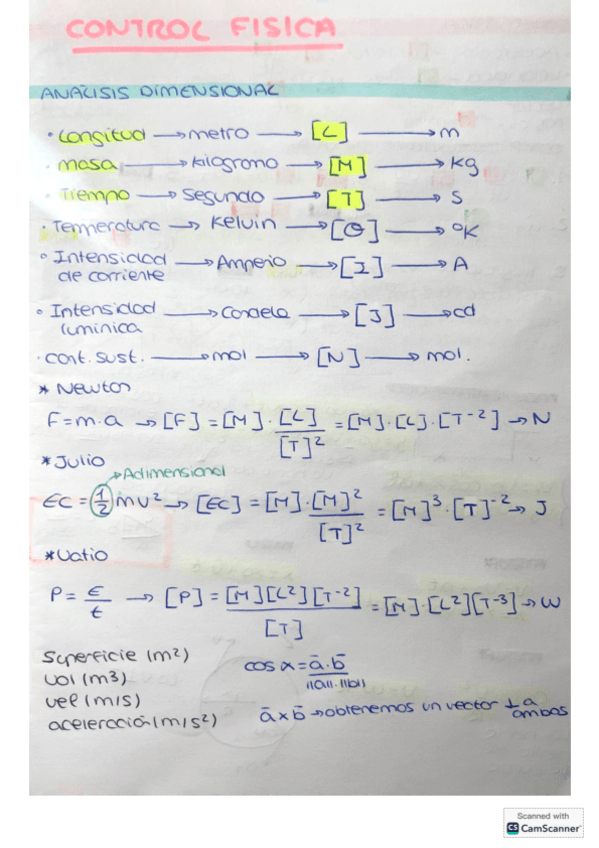 CONTROL FISICA
ANÁLISIS DIMENSIONAL
· Longitud → metro → [L] → m
· masa → kilogramo → [M] → Kg
· Tiempo → Segundo → [T] → S
· Temperatura → Kelvin → [Θ] → ºK
· Intensidad de corriente → Amperio → [I] → A
· Intensidad lumínica → Candela → [J] → cd
· cant. sust. → mol → [N] → mol.
* Newton
F = m·a → [F] = [M] · [L]/[T]² = [M]·[L]·[T⁻²] → N
* Julio
→ Adimensional
EC = 1/2 mv² → [EC] = [M]·[M]²/[T]² = [M]³·[T]⁻² → J
* Vatio
P = E/t → [P] = [M][L²][T⁻²]/[T] = [M]·[L²][T⁻³] → W
Superficie (m²)
vol (m³)
vel (m/s)
aceleración (m/s²)
cos α = a̅·b̅ / ||a||·||b||
a̅ x b̅ → obtenemos un vector ⊥ a ambos
Scanned with
CS CamScanner